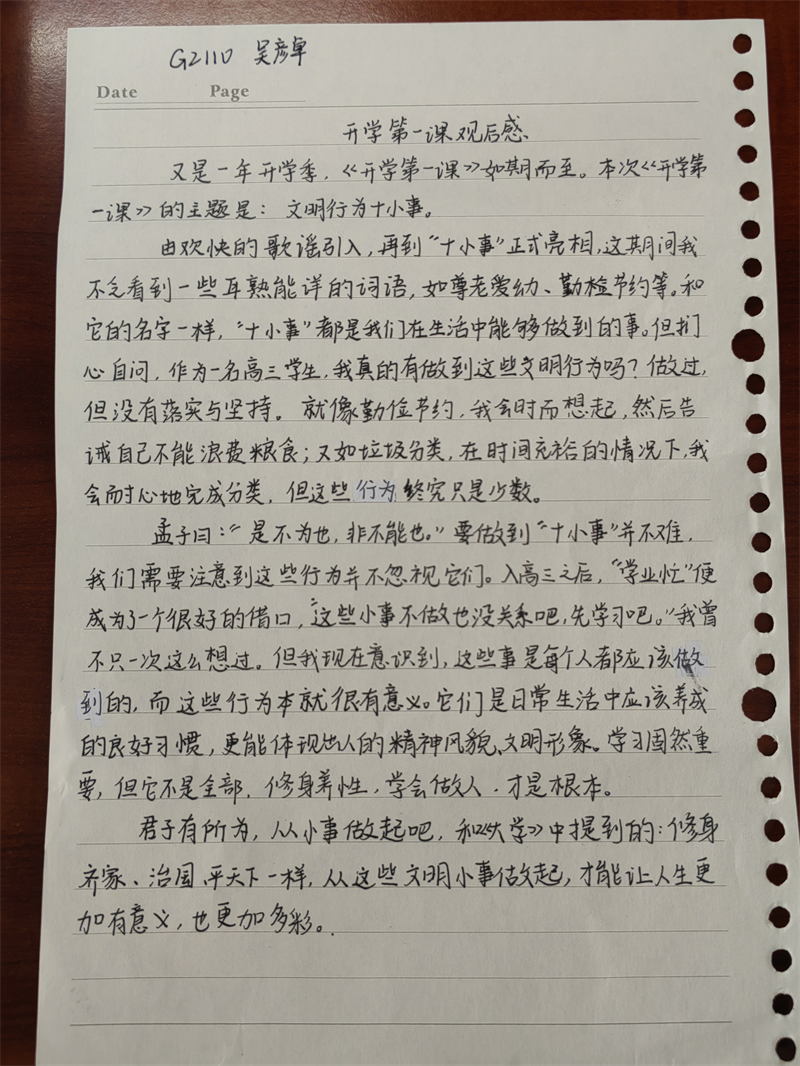 G2110 吴彦卓
Date Page
开学第一课观后感
又是一年开学季,《开学第一课》如期而至。本次《开学第
一课》的主题是:文明行为十小事。
由欢快的歌谣引入,再到“十小事”正式亮相,这期间我
不乏看到一些耳熟能详的词语,如尊老爱幼、勤检节约等。和
它的名字一样,“十小事”都是我们在生活中能够做到的事。但扪
心自问,作为一名高三学生,我真的有做到这些文明行为吗?做过,
但没有落实与坚持。就像勤俭节约,我会时而想起,然后告
诫自己不能浪费粮食;又如垃圾分类,在时间充裕的情况下,我
会耐心地完成分类,但这些行为终究只是少数。
孟子曰:“是不为也,非不能也。”要做到“十小事”并不难,
我们需要注意到这些行为并不忽视它们。入高三之后,“学业忙”便
成为了一个很好的借口,“这些小事不做也没关系吧,先学习吧。”我曾
不只一次这么想过。但我现在意识到,这些事是每个人都应该做
到的,而这些行为本就很有意义。它们是日常生活中应该养成
的良好习惯,更能体现出人的精神风貌、文明形象。学习固然重
要,但它不是全部,修身养性,学会做人,才是根本。
君子有所为,从小事做起吧,和《大学》中提到的:修身
齐家、治国平天下一样,从这些文明小事做起,才能让人生更
加有意义,也更加多彩。